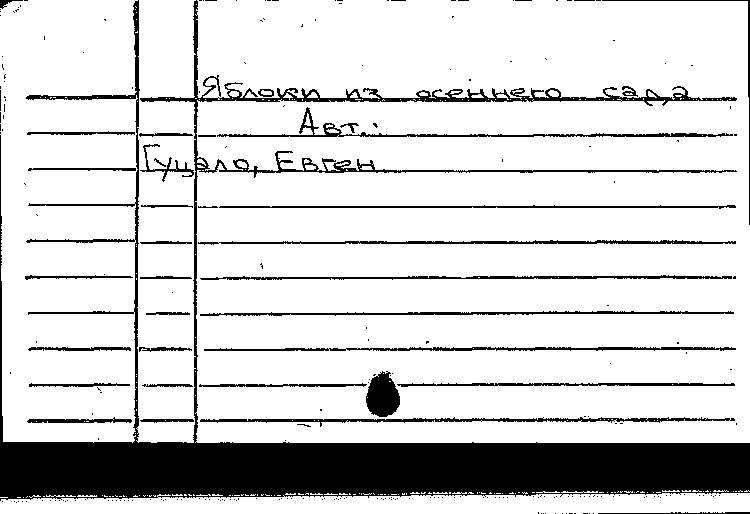 Яблоки из осеннего сада
Авт.:
Гуцало, Евген